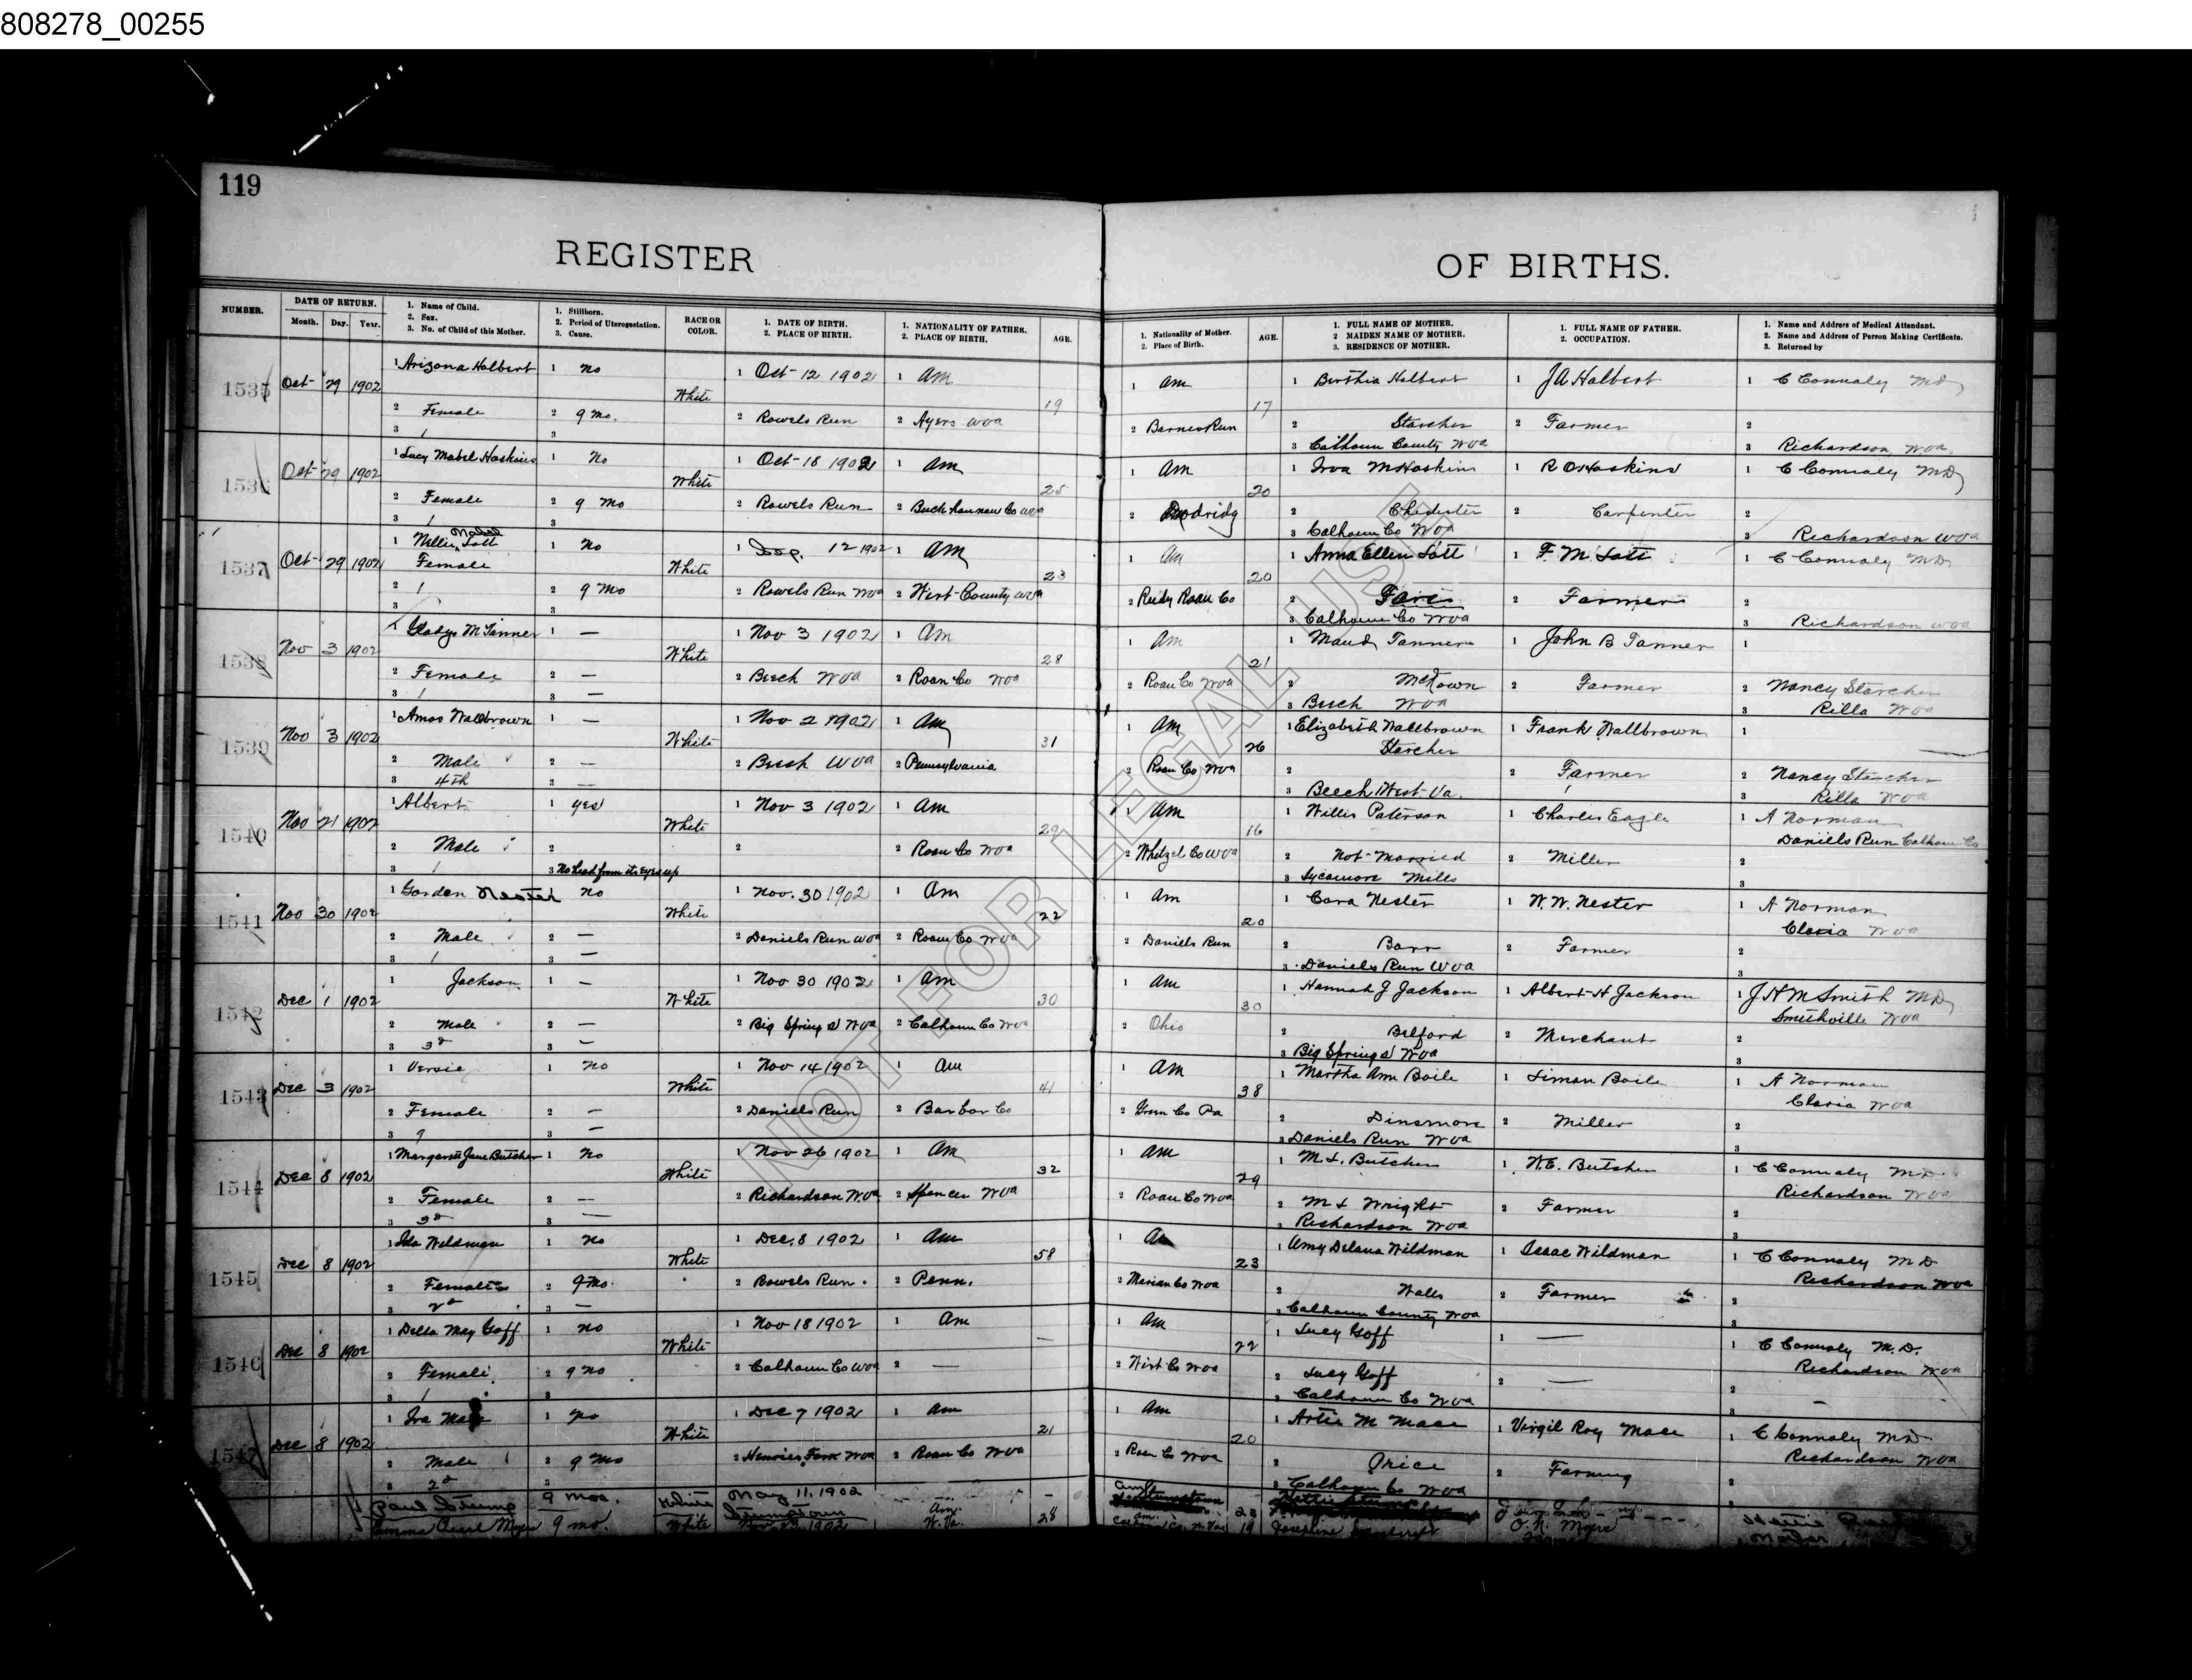 808278_00255
119
REGISTER OF BIRTHS.
NUMBER.
DATE OF RETURN.
Month. Day. Year.
1. Name of Child.
2. Sex.
3. No. of Child of this Mother.
1. Stillborn.
2. Period of Uterogestation.
3. Cause.
RACE OR COLOR.
1. DATE OF BIRTH.
2. PLACE OF BIRTH.
1. NATIONALITY OF FATHER.
2. PLACE OF BIRTH.
AGE.
1. Nationality of Mother.
2. Place of Birth.
AGE.
1. FULL NAME OF MOTHER.
2 MAIDEN NAME OF MOTHER.
3. RESIDENCE OF MOTHER.
1. FULL NAME OF FATHER.
2. OCCUPATION.
1. Name and Address of Medical Attendant.
2. Name and Address of Person Making Certificate.
3. Returned by
1535 Oct 29 1902 1 Arizona Halbert 1 No White 1 Oct-12 1902 1 Am 19 1 Am 17 1 Berthia Halbert 1 J A Halbert 1 C Connaly MD
2 Female 2 9 mo. 2 Rowels Run 2 Ayers Wva 2 Barnes Run 2 Starcher 2 Farmer 2
3 1 3 3 Calhoun County Wva 3 Richardson Wva
1536 Oct 29 1902 1 Lucy Mabel Haskins 1 No White 1 Oct-18 1902 1 Am 25 1 Am 20 1 Irva M Haskins 1 R O Haskins 1 C Connaly MD
2 Female 2 9 Mo 2 Rowels Run 2 Buckhannan Co Wva 2 Dodridg 2 Chidester 2 Carpenter 2
3 1 3 3 Calhoun Co Wva 3 Richardson Wva
1537 Oct 29 1902 1 Nellie Mabel Lott 1 No White 1 Sep. 12 1902 1 Am 23 1 Am 20 1 Anna Ellen Lott 1 F. M. Lott 1 C Connaly MD
Female
2 1 2 9 Mo 2 Rowels Run Wva 2 Wirt-County Wva 2 Reedy Roan Co 2 Faris 2 Farmer 2
3 3 3 Calhoun Co Wva 3 Richardson Wva
1538 Nov 3 1902 1 Gladys M Tanner 1 — White 1 Nov 3 1902 1 Am 28 1 Am 21 1 Maud Tanner 1 John B Tanner 1
2 Female 2 — 2 Beech Wva 2 Roan Co Wva 2 Roan Co Wva 2 McKown 2 Farmer 2 Nancy Starcher
3 1 3 — 3 Beech Wva 3 Rilla Wva
1539 Nov 3 1902 1 Amos Wallbrown 1 — White 1 Nov 2 1902 1 Am 31 1 Am 26 1 Elizabeth Wallbrown 1 Frank Wallbrown 1
Starcher
2 Male 2 — 2 Beech Wva 2 Pennsylvania 2 Roan Co Wva 2 2 Farmer 2 Nancy Starcher
3 4th 3 — 3 Beech West-Va. 3 Rilla Wva
1540 Nov 21 1902 1 Albert 1 yes White 1 Nov 3 1902 1 Am 29 1 Am 16 1 Willie Paterson 1 Charles Eagle 1 A Norman
Daniels Run Calhoun Co
2 Male 2 2 2 Roan Co Wva 2 Whitzel Co Wva 2 Not-Married 2 Miller 2
3 1 3 No head from its eyes up 3 Sycamore Mills 3
1541 Nov 30 1902 1 Gorden Nester No White 1 Nov. 30 1902 1 Am 22 1 Am 20 1 Cora Nester 1 W. W. Nester 1 A Norman
Cloria Wva
2 Male 2 — 2 Daniels Run Wva 2 Roan Co Wva 2 Daniels Run 2 Barr 2 Farmer 2
3 1 3 — 3 Daniels Run Wva 3
1542 Dec 1 1902 1 Jackson 1 — White 1 Nov 30 1902 1 Am 30 1 Am 30 1 Hannah J Jackson 1 Albert H Jackson 1 J H M Smith MD
Smithville Wva
2 Male 2 — 2 Big Springs Wva 2 Calhoun Co Wva 2 Ohio 2 Belford 2 Merchant 2
3 3d 3 — 3 Big Springs Wva 3
1543 Dec 3 1902 1 Versie 1 No White 1 Nov 14 1902 1 Am 41 1 Am 38 1 Martha Ann Boile 1 Simon Boile 1 A Norman
Cloria Wva
2 Female 2 — 2 Daniels Run 2 Barbor Co 2 Green Co Pa 2 Dinsmore 2 Miller 2
3 9 3 — 3 Daniels Run Wva 3
1544 Dec 8 1902 1 Margaret Jane Butcher 1 No White 1 Nov 26 1902 1 Am 32 1 Am 29 1 M. L. Butcher 1 W. E. Butcher 1 C Connaly MD
Richardson Wva
2 Female 2 — 2 Richardson Wva 2 Spencer Wva 2 Roan Co Wva 2 M L Wright 2 Farmer 2
3 3d 3 — 3 Richardson Wva 3
1545 Dec 8 1902 1 Ida Wildman 1 No White 1 Dec. 8 1902 1 Am 58 1 Am 23 1 Amy Delana Wildman 1 Isaac Wildman 1 C Connaly MD
Richardson Wva
2 Female 2 9 Mo. 2 Rowels Run. 2 Penn. 2 Marian Co Wva 2 Walls 2 Farmer 2
3 2d 3 — 3 Calhoun County Wva 3
1546 Dec 8 1902 1 Della May Goff 1 No White 1 Nov 18 1902 1 Am — 1 Am 22 1 Lucy Goff 1 — 1 C Connaly M.D.
Richardson Wva
2 Female 2 9 mo 2 Calhoun Co Wva 2 — 2 Wirt Co Wva 2 Lucy Goff 2 — 2
3 1 3 3 Calhoun Co Wva 3
1547 Dec 8 1902 1 Ira Mace 1 No White 1 Dec 7 1902 1 Am 21 1 Am 20 1 Artie M Mace 1 Virgil Roy Mace 1 C Connaly MD
Richardson Wva
2 Male 2 9 Mo 2 Henries Fork Wva 2 Roan Co Wva 2 Roan Co Wva 2 Price 2 Farming 2
3 2d 3 3 Calhoun Co Wva 3
Paul Stump 9 mos. White May 11, 1902 Stumptown Am. — Am
Emma Pearl Myer 9 mo. White Nov 29 1902 W. Va. 28 Am. Calhoun Co. W. Va. 19 Josephine O. N. Myer
NOT FOR LEGAL USE